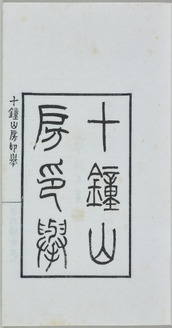 十鐘山
房印舉
十鐘山房印舉